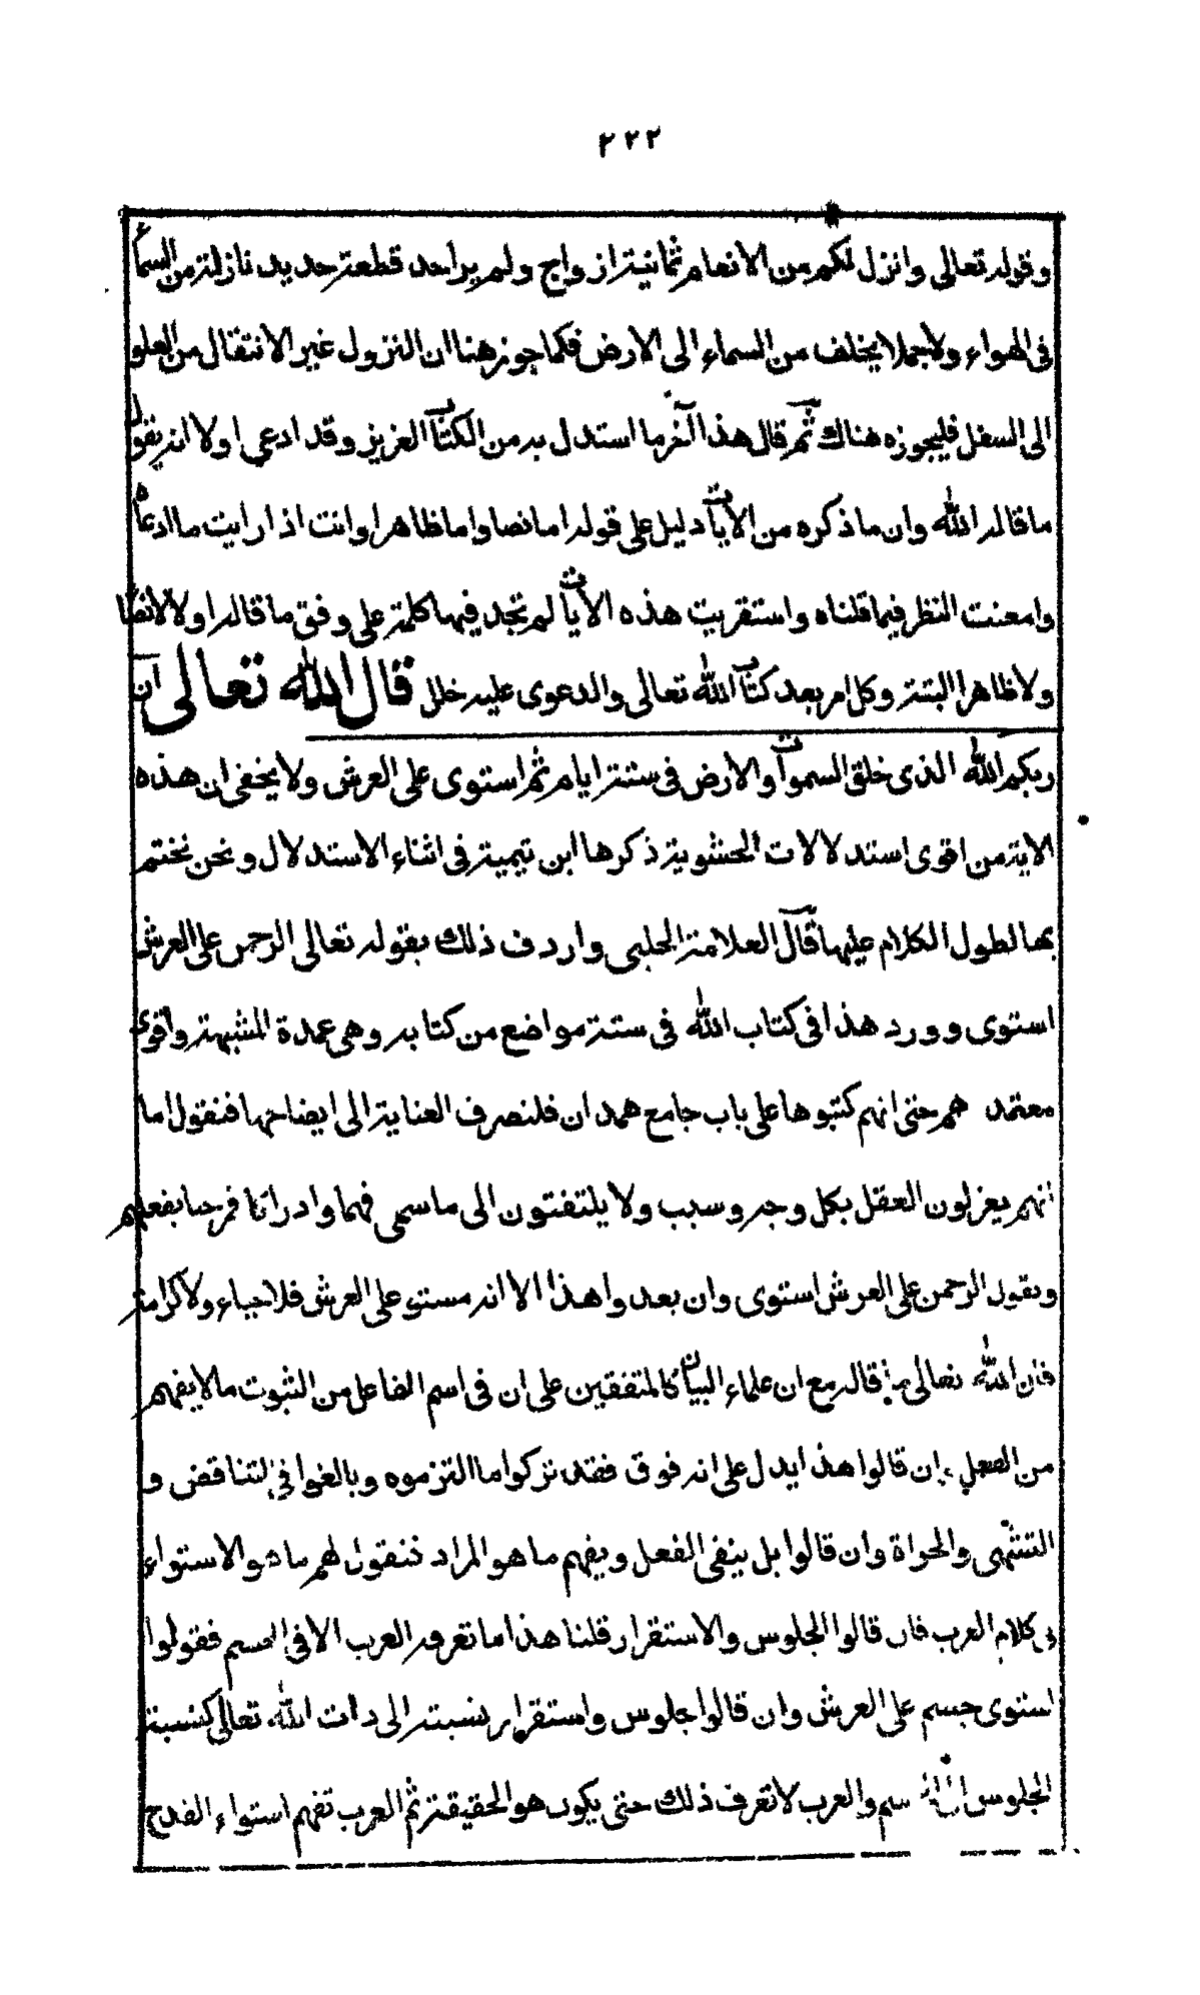 ٢٢٢
وقوله تعالى وانزل لكم من الانعام ثمانية ازواج ولم ير احد قطعة حديد نازلة من السماء
فى الهواء ولا جملا يخلف من السماء الى الارض فكما جوز هنا ان النزول غير الانتقال من العلو
الى السفل فليجوزه هناك ثم قال هذا آخر ما استدل به من الكتاب العزيز وقد ادعى اولا انه يقول
ما قاله الله وان ما ذكره من الايات دليل على قوله اما نصا واما ظاهرا وانت اذا رايت ما ادعاه
وامعنت النظر فيما قلناه واستقريت هذه الايات لم تجد فيها كلمة على وفق ما قاله اولا لا نصا
ولا ظاهرا البتة وكل امر بعد كتاب الله تعالى والدعوى عليه خلل قال الله تعالى ان
ربكم الله الذى خلق السموات والارض فى ستة ايام ثم استوى على العرش ولا يخفى ان هذه
الاية من اقوى استدلالات الحشوية ذكرها ابن تيمية فى اثناء الاستدلال ونحن نختم
بها لطول الكلام عليها قال العلامة الحلبى واردف ذلك بقوله تعالى الرحمن على العرش
استوى وورد هذا فى كتاب الله فى ستة مواضع من كتابه وهى عمدة المشبهة واقوى
معتمد هم حتى انهم كتبوها على باب جامع همدان فلنصرف العناية الى ايضاحها فنقول اما
انهم يعزلون العقل بكل وجه وسبب ولا يلتفتون الى ما سمى فهما وادراكا فمرحبا بفعلهم
وبقول الرحمن على العرش استوى وان بعدوا هذا الا انه مستو على العرش فلا حباء ولا كرامة
فان الله تعالى ما قاله مع ان علماء البيان كالمتفقين على ان فى اسم الفاعل من الثبوت ما لا يفهم
من الفعل وان قالوا هذا يدل على انه فوق فقد تركوا ما التزموه وبالغوا فى التناقض و
التشهى والجراة وان قالوا بل ينفى الفعل ويفهم ما هو المراد فنقول لهم ما هو الاستواء
فى كلام العرب فان قالوا الجلوس والاستقرار قلنا هذا ما تعرفه العرب الا فى الجسم فقولوا
استوى جسم على العرش وان قالوا جلوس واستقرار نسبته الى ذات الله تعالى كنسبة
الجلوس الى الجسم والعرب لا تعرف ذلك حتى يكون هو الحقيقة ثم العرب تفهم استواء القدح